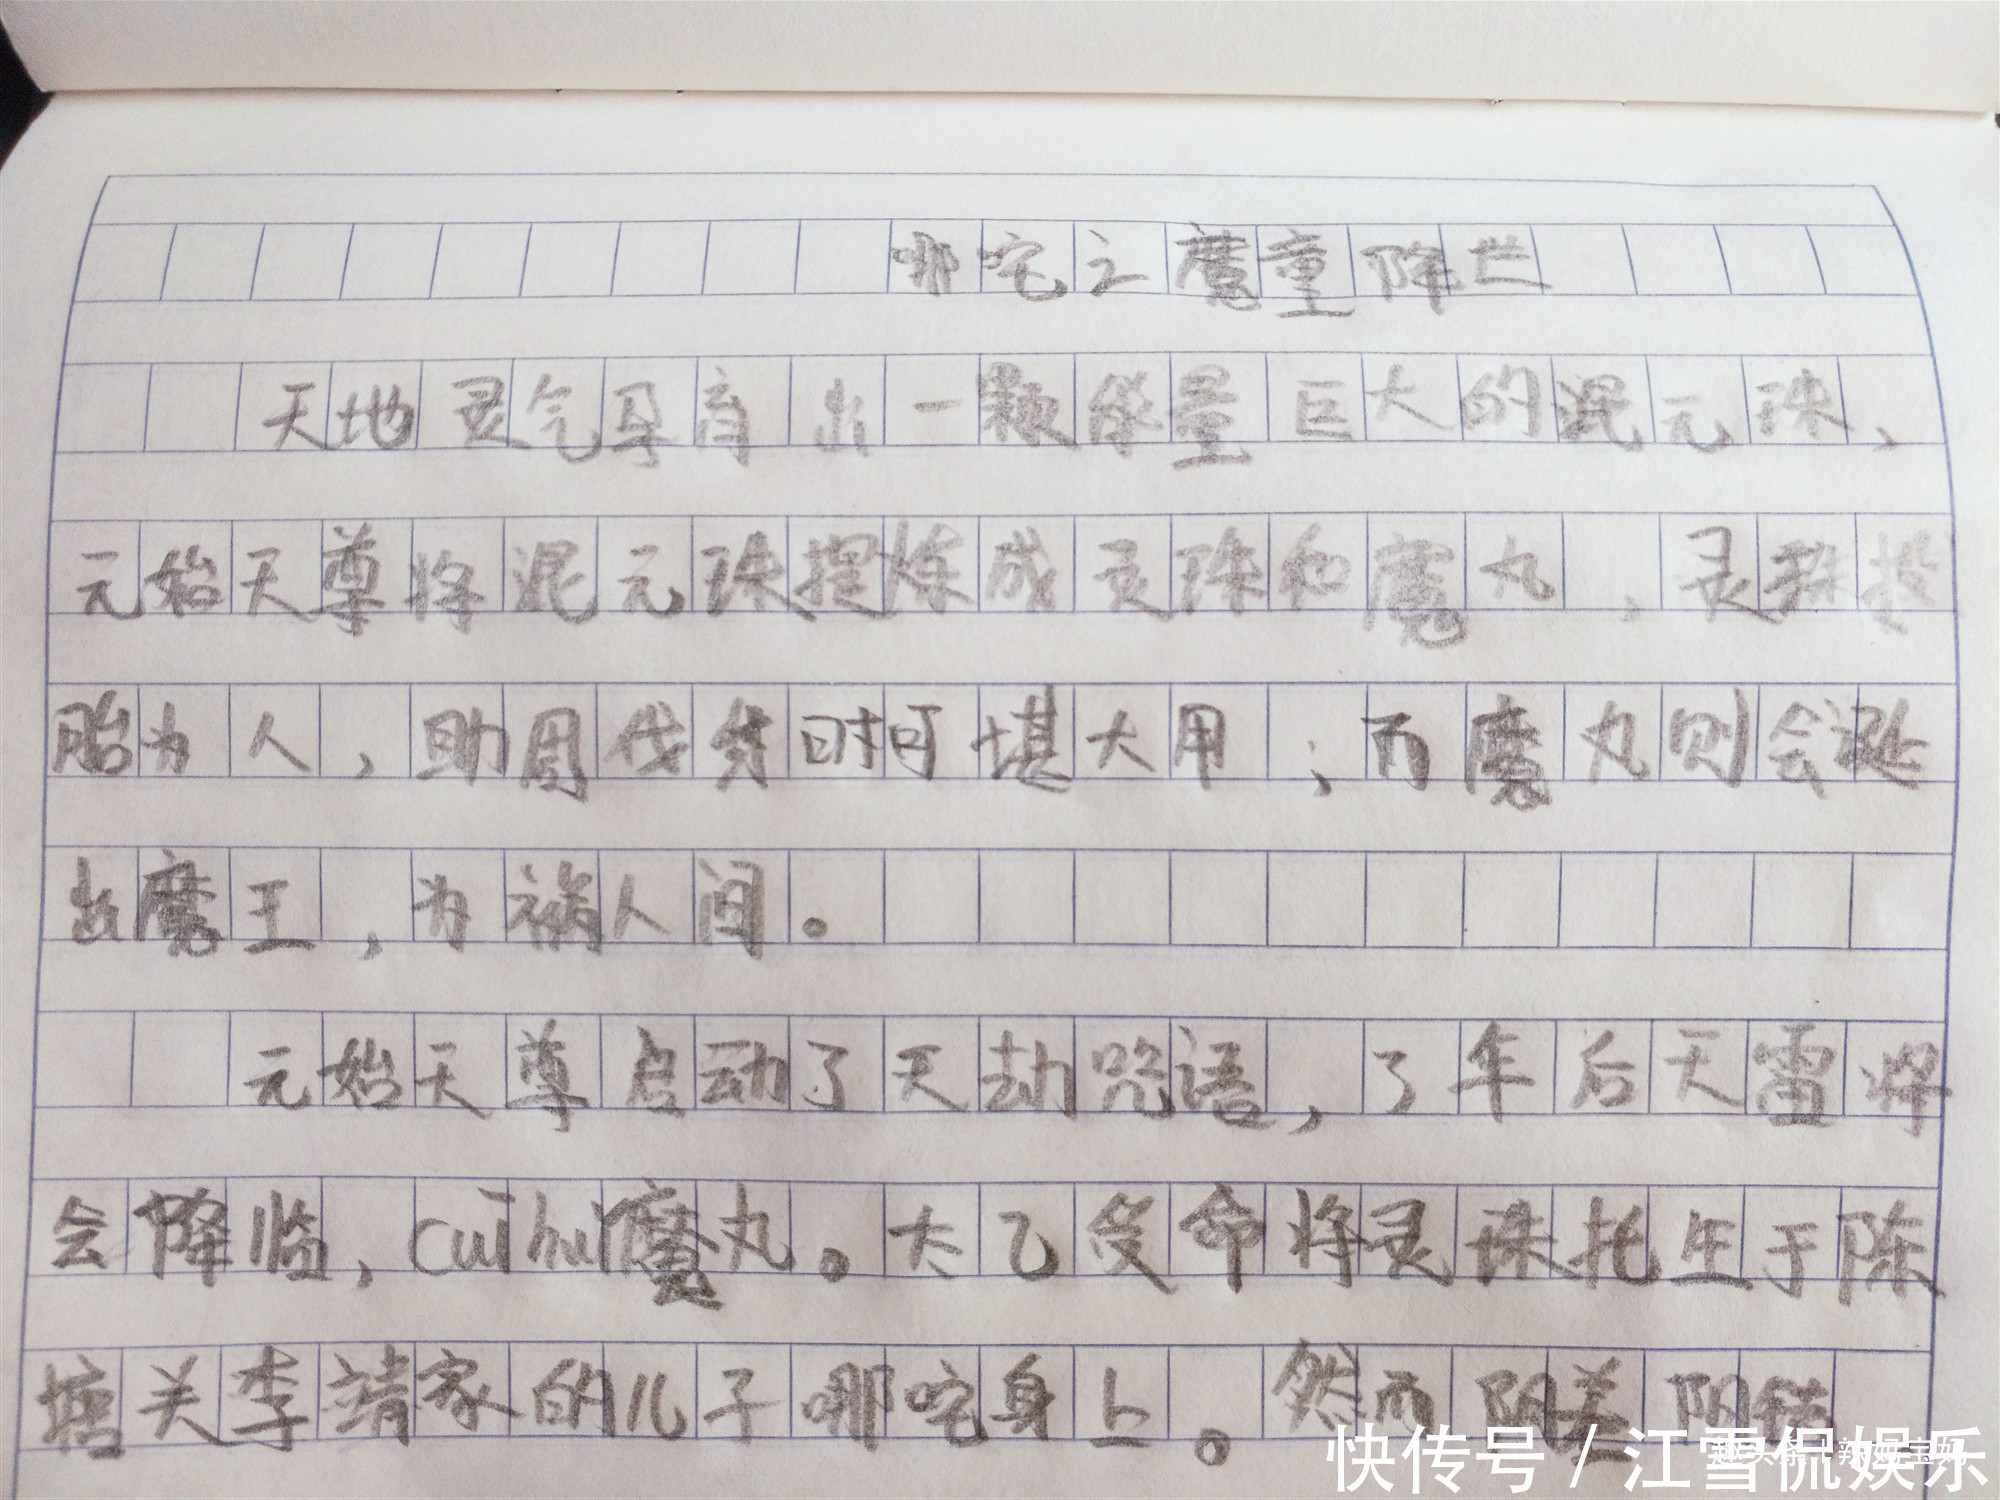 哪吒之魔童降世
天地灵气孕育出一颗能量巨大的混元珠、
元始天尊将混元珠提炼成灵珠和魔丸,灵珠投
胎为人,助周伐纣时可堪大用;而魔丸则会诞
出魔王,为祸人间。
元始天尊启动了天劫咒语,3年后天雷将
会降临,cuī huǐ魔丸。太乙受命将灵珠托生于陈
塘关李靖家的儿子哪吒身上。然而阴差阳错
快传号/江雪侃娱乐